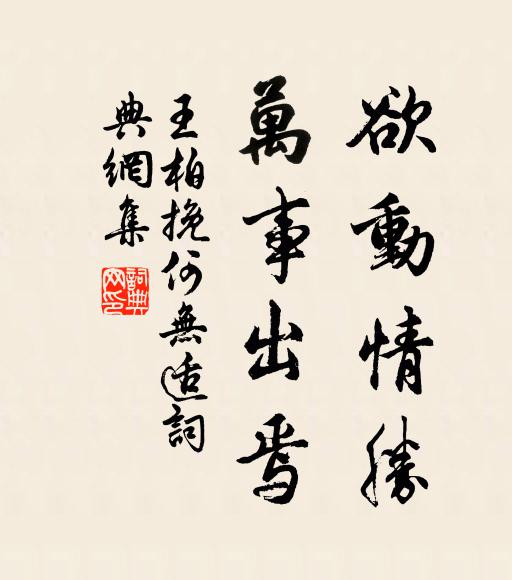 欲動情勝
萬事出焉
王柏挽何無適詞
典網集
詞典網印